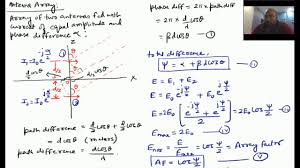 Antenna Array:
Array of two antennas fed with
current of equal amplitude and
phase difference α
z
I₁ = I₀e^{-jα/2}
I₂ = I₀e^{jα/2}
x
d cosθ
path difference = d/2 cosθ + d/2 cosθ
= d cosθ (meters)
path difference = d cosθ/λ
phase diff = 2π × path diff
= 2π × d/λ cosθ
total difference:
ψ = α + βd cosθ
E = E₁ + E₂
E = E₀e^{-jψ/2} + E₀e^{jψ/2}
E = 2E₀ [e^{jψ/2} + e^{-jψ/2}]/2 = 2E₀ cos ψ/2
E_max = 2E₀
E_nor = E/E_max = cos ψ/2 = Array factor
AF = cos ψ/2